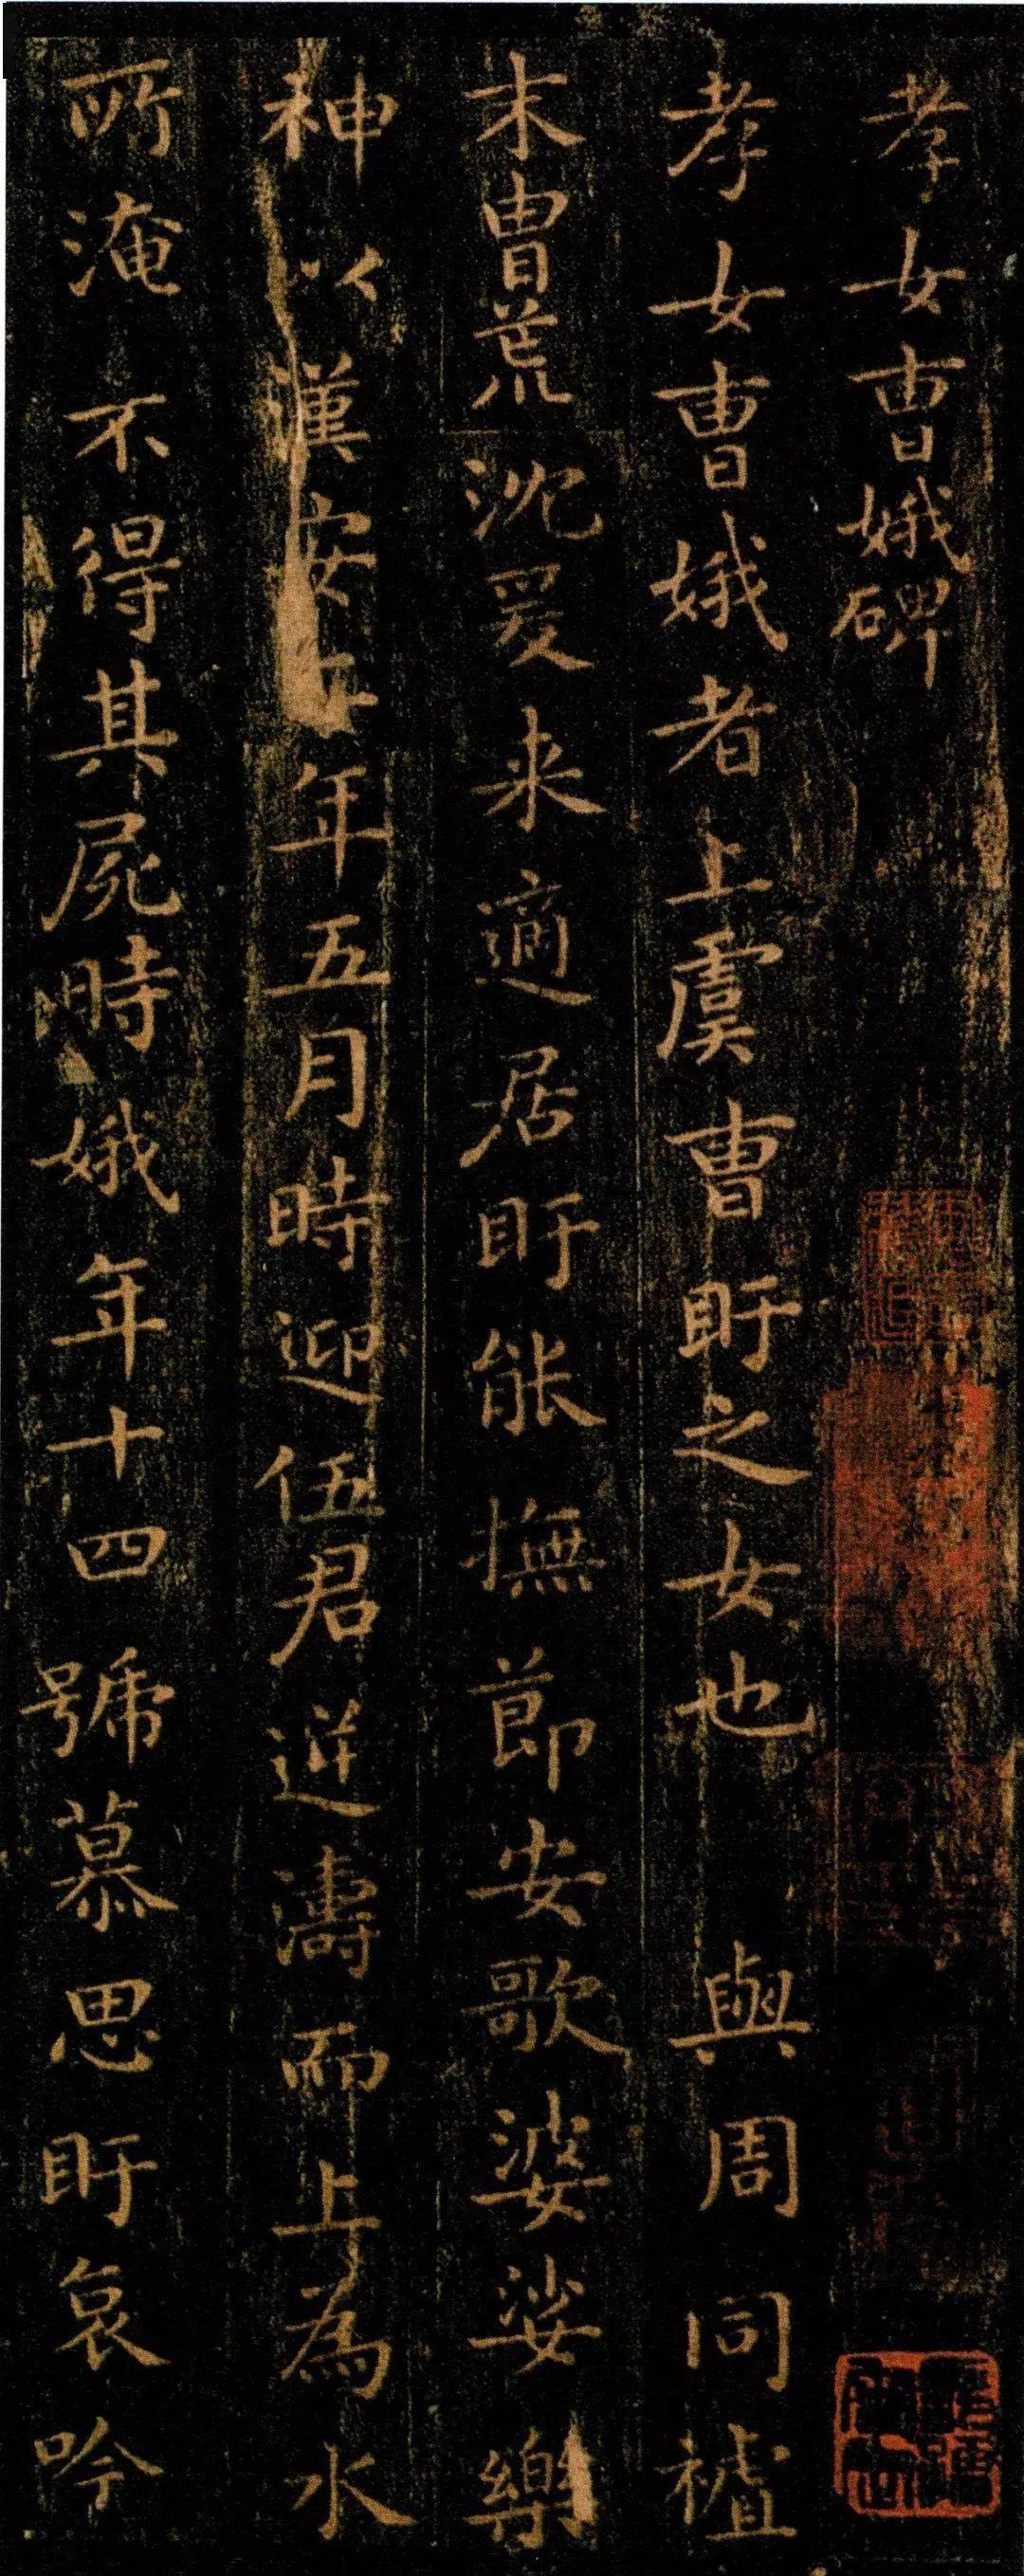 孝女曹娥碑
孝女曹娥者上虞曹盱之女也 與周同
末胄荒沈爰来適居盱能撫節安歌婆娑樂
神以漢安二年五月時迎伍君逆濤而上為水
所淹不得其屍時娥年十四號慕思盱哀吟